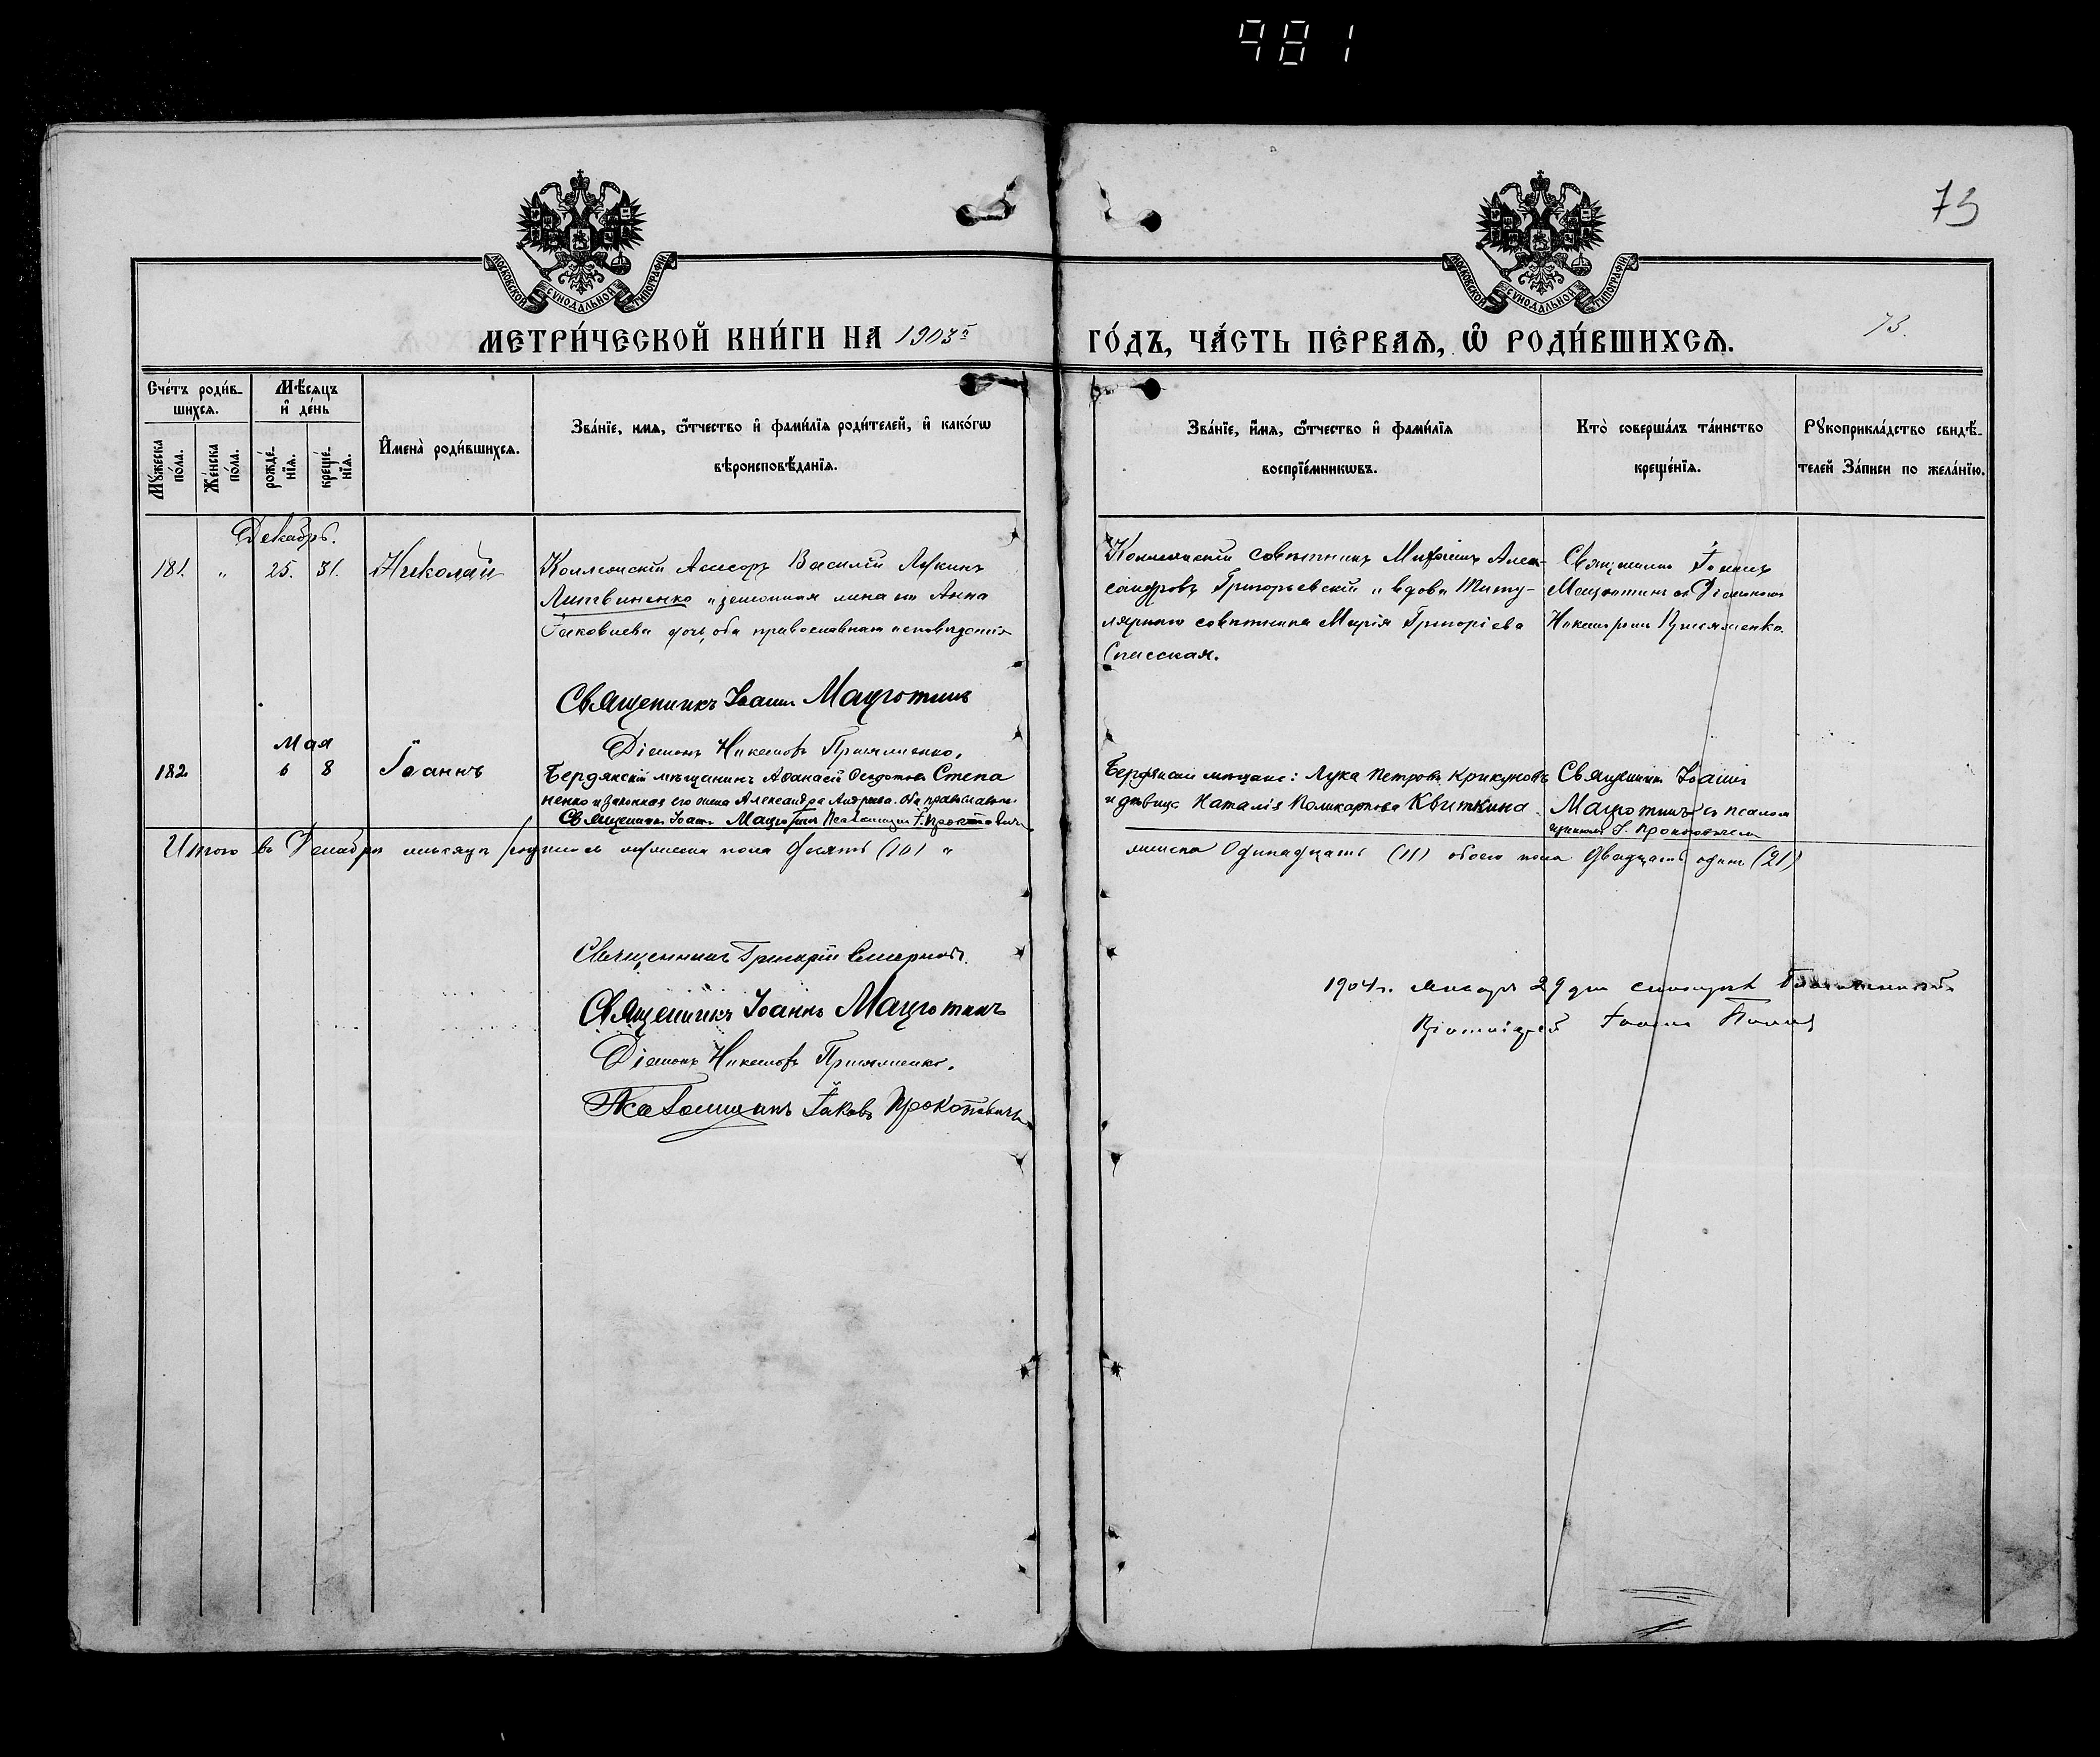 981
73
МОСКОВСКОЙ СѴНОДАЛЬНОЙ ТИПОГРАФІИ
МОСКОВСКОЙ СѴНОДАЛЬНОЙ ТИПОГРАФІИ
МЕТРИ́ЧЕСКОЙ КНИ́ГИ НА 1903й ГО́ДЪ, ЧА́СТЬ ПЕ́РВАѦ, Ѡ҆ РОДИ́ВШИХСѦ.
73.
Сче́тъ роди́в-
шихсѧ.
Мѣ́сѧцъ
и҆ де́нь
Мꙋ́жеска по́ла.
Же́нска по́ла.
рожде́-
нїѧ.
креще́-
нїѧ.
И҆мена̀ роди́вшихсѧ.
Зва́нїе, имѧ, ѻ҆́тчество и҆ фами́лїѧ роди́телей, и҆ како́гѡ
вѣроисповѣ́данїѧ.
Зва́нїе, и҆́мѧ, ѻ҆́тчество и҆ фами́лїѧ
воспрїе́мникѡвъ.
Кто̀ соверша́лъ та́инство
креще́нїѧ.
Рꙋкоприкла́дство свидѣ́-
телей За́писи по жела́нїю.
Декабрь.
181. " 25. 31. Николай
Коллежскій Асессоръ Василій Лукинъ
Литвиненко и законная жена его Анна
Іаковлева дочь, оба православнаго исповѣданія
Коллежскій совѣтникъ Михаилъ Алек-
сандровъ Григорьевскій и вдова Титу-
лярнаго совѣтника Марія Григоріева
Спасская.
Священникъ Іоаннъ
Мацготинъ съ Діакономъ
Священникъ Іоаннъ Мацготинъ
Діаконъ Никаноръ
Мая
182 6 8 Іоаннъ
Бердянскій мѣщанинъ Афанасій Ѳедотовъ Степа
ненко и законная его жена Александра Андреева. Оба православн.
Священникъ Іоаннъ Мацготинъ Псаломщикъ І. Прокоповичъ
Бердянскіе мѣщане: Лука Петровъ Крикуновъ
и дѣвица Наталія Поликарпова Квиткина
Священникъ Іоаннъ
Мацготинъ съ псалом
щикомъ І. Прокоповичемъ
Итого въ Декабрѣ мѣсяцѣ родилось мужеска пола десять (10) и женска Одинадцать (11) обоего пола двадцать одинъ (21)
Священникъ Григорій
Священникъ Іоаннъ Мацготинъ
Діаконъ Никаноръ
Псаломщикъ Іаковъ Прокоповичъ
1904 г. Января 29 дня
Протоіерей Іоаннъ